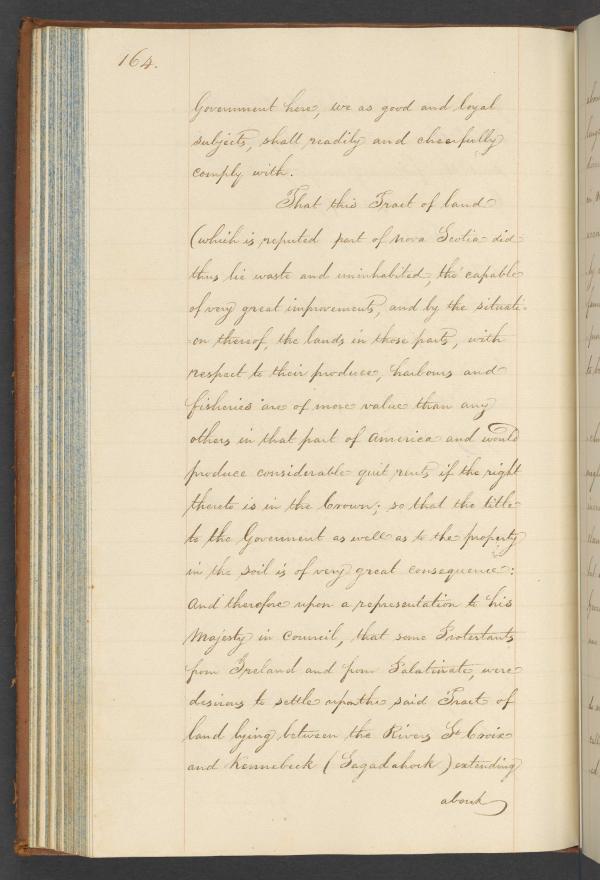 164.
Government here, we as good and loyal
subjects, shall readily and cheerfully
comply with.
That this Tract of land
(which is reputed part of Nova Scotia did
thus lie waste and uninhabited, tho' capable
of very great improvements, and by the situati-
on thereof, the lands in those parts, with
respect to their produce, harbours and
fisheries are of more value than any
others in that part of America and would
produce considerable quit rents if the right
thereto is in the Crown; so that the title
to the Goverment as well as to the property
in the soil is of very great consequence:
And therefore upon a representation to his
Majesty in Council, that some Protestants
from Ireland and from Palatinate, were
desirous to settle upon the said Tract of
land lying between the Rivers St Croix
and Kennebeck (Sagadahock) extending
about